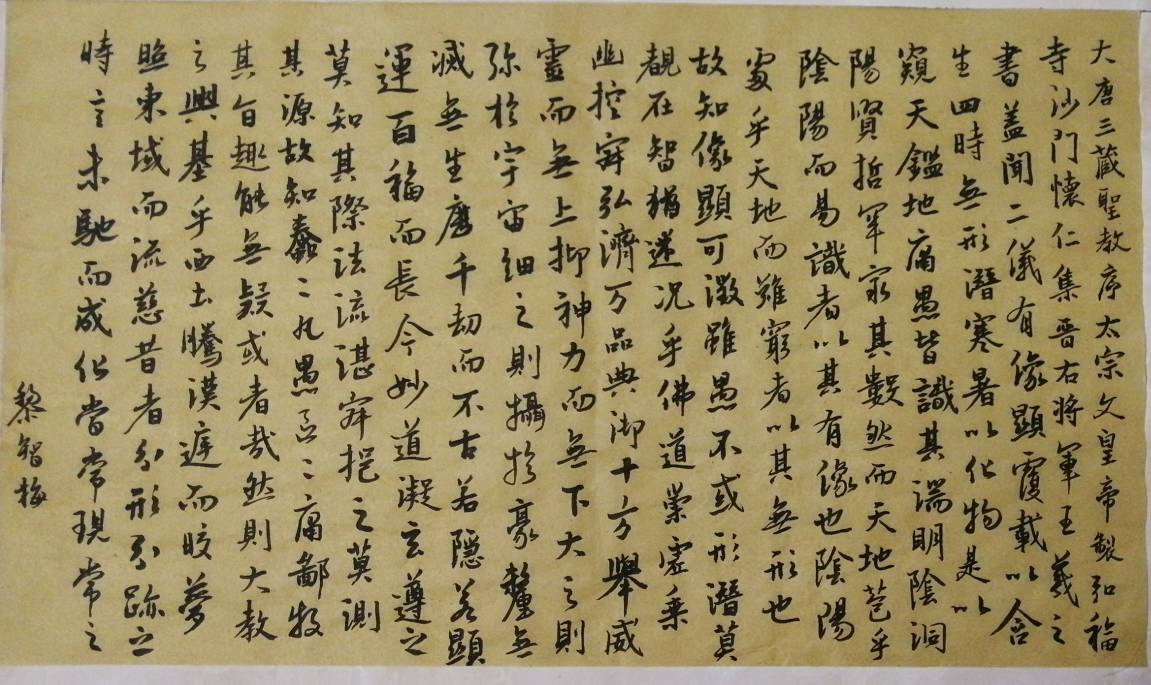 大唐三藏聖教序太宗文皇帝製弘福
寺沙门懷仁集晋右將軍王羲之
書盖聞二儀有像顯覆載以含
生四時無形潛寒暑以化物是以
窺天鑑地庸愚皆識其端明陰洞
陽賢哲罕窮其數然而天地苞乎
陰陽而易識者以其有像也陰陽
處乎天地而難窮者以其無形也
故知像顯可徵雖愚不或形潛莫
覩在智猶迷况乎佛道崇虛乘
幽控寂弘濟万品典御十方舉威
靈而無上抑神力而無下大之則
弥於宇宙細之則攝於豪釐無
滅無生歷千劫而不古若隱若顯
運百福而長今妙道凝玄遵之
莫知其際法流湛寂挹之莫測
其源故知蠢二凡愚區二庸鄙投
其旨趣能無疑或者哉然則大教
之興基乎西土騰漢庭而皎夢
照東域而流慈昔者分形分跡之
時言未馳而成化當常現常之
黎智梅